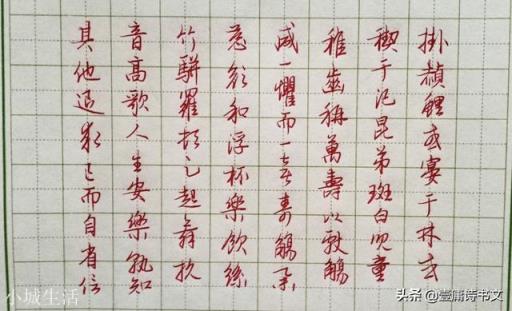 掛赬鯉或宴于林或
禊于汜昆弟斑白兒童
稚齒稱萬壽以獻觴
咸一懼而一喜壽觴舉
慈顏和浮杯樂飲絲
竹駢羅頓足起舞抗
音高歌人生安樂孰知
其他退求己而自省信
小城生活
头条 @壹庸诗书文